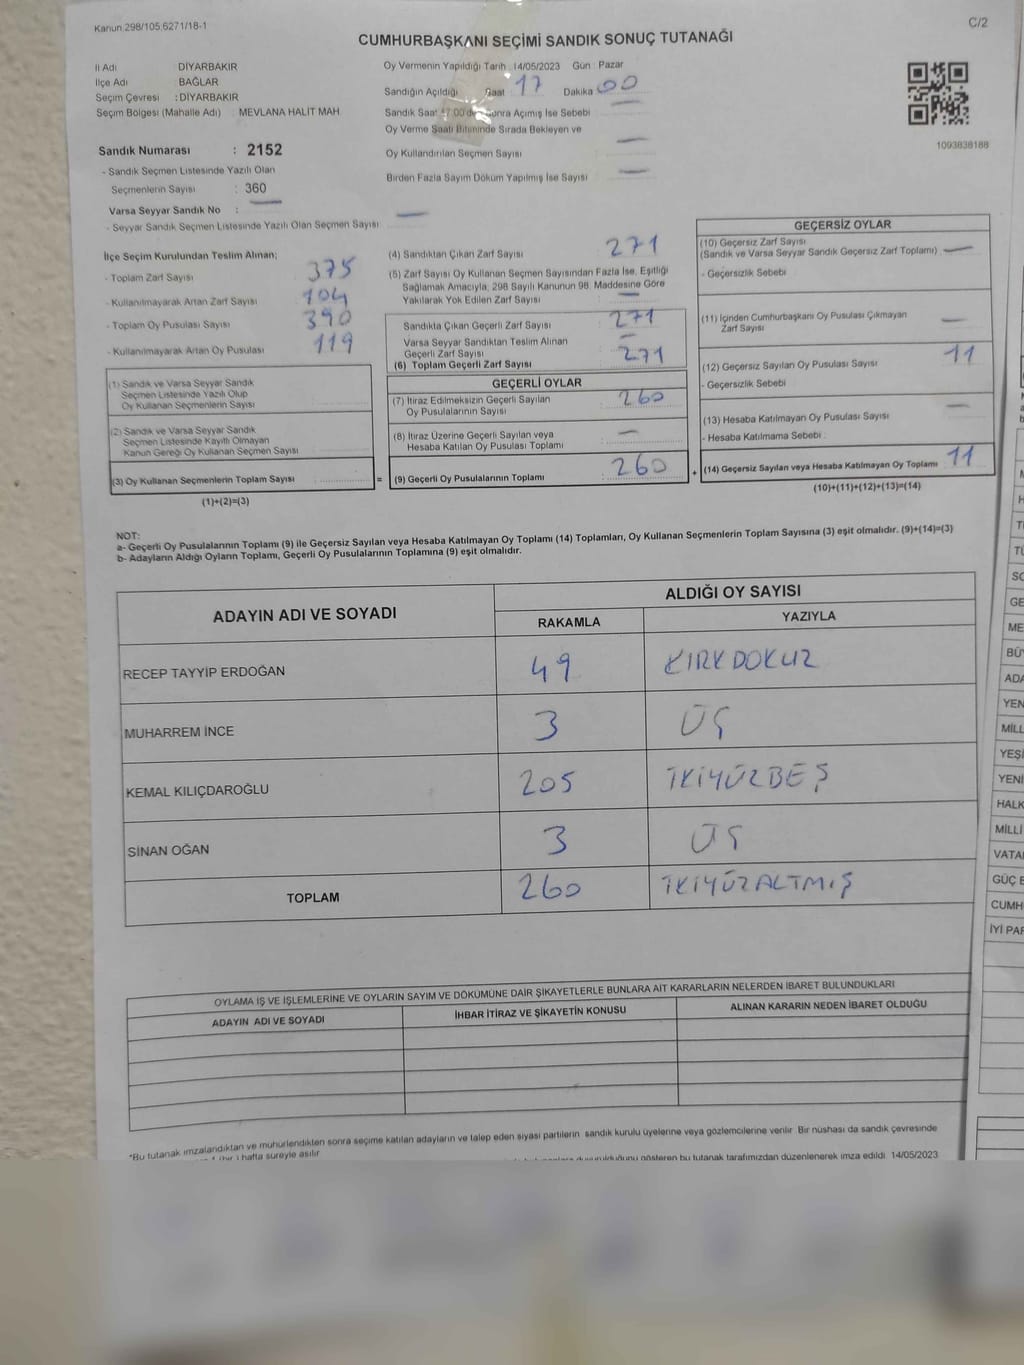 Kanun 298/105;6271/18-1
C/2
CUMHURBAŞKANI SEÇİMİ SANDIK SONUÇ TUTANAĞI
İl Adı : DİYARBAKIR
İlçe Adı : BAĞLAR
Seçim Çevresi : DİYARBAKIR
Seçim Bölgesi (Mahalle Adı) : MEVLANA HALİT MAH
Sandık Numarası : 2152
- Sandık Seçmen Listesinde Yazılı Olan
Seçmenlerin Sayısı : 360
Varsa Seyyar Sandık No : —
- Seyyar Sandık Seçmen Listesinde Yazılı Olan Seçmen Sayısı : —
Oy Vermenin Yapıldığı Tarih : 14/05/2023 Gün : Pazar
Sandığın Açıldığı Saat 17 Dakika 00
Sandık Saat 17:00 den Sonra Açımış İse Sebebi : —
Oy Verme Saati Bitiminde Sırada Bekleyen ve
Oy Kullandırılan Seçmen Sayısı : —
Birden Fazla Sayım Döküm Yapılmış İse Sayısı : —
1093838188
İlçe Seçim Kurulundan Teslim Alınan;
- Toplam Zarf Sayısı : 375
- Kullanılmayarak Artan Zarf Sayısı : 104
- Toplam Oy Pusulası Sayısı : 390
- Kullanılmayarak Artan Oy Pusulası : 119
(1) Sandık ve Varsa Seyyar Sandık
Seçmen Listesinde Yazılı Olup
Oy Kullanan Seçmenlerin Sayısı
(2) Sandık ve Varsa Seyyar Sandık
Seçmen Listesinde Kayıtlı Olmayan
Kanun Gereği Oy Kullanan Seçmen Sayısı
(3) Oy Kullanan Seçmenlerin Toplam Sayısı =
(1)+(2)=(3)
(4) Sandıktan Çıkan Zarf Sayısı : 271
(5) Zarf Sayısı Oy Kullanan Seçmen Sayısından Fazla İse, Eşitliği
Sağlamak Amacıyla, 298 Sayılı Kanunun 98. Maddesine Göre
Yakılarak Yok Edilen Zarf Sayısı : —
Sandıkta Çıkan Geçerli Zarf Sayısı : 271
Varsa Seyyar Sandıktan Teslim Alınan
Geçerli Zarf Sayısı : —
(6) Toplam Geçerli Zarf Sayısı : 271
GEÇERLİ OYLAR
(7) İtiraz Edilmeksizin Geçerli Sayılan
Oy Pusulalarının Sayısı : 260
(8) İtiraz Üzerine Geçerli Sayılan veya
Hesaba Katılan Oy Pusulası Toplamı : —
(9) Geçerli Oy Pusulalarının Toplamı : 260 +
GEÇERSİZ OYLAR
(10) Geçersiz Zarf Sayısı
(Sandık ve Varsa Seyyar Sandık Geçersiz Zarf Toplamı) : —
- Geçersizlik Sebebi
(11) İçinden Cumhurbaşkanı Oy Pusulası Çıkmayan
Zarf Sayısı : —
(12) Geçersiz Sayılan Oy Pusulası Sayısı : 11
- Geçersizlik Sebebi
(13) Hesaba Katılmayan Oy Pusulası Sayısı : —
- Hesaba Katılmama Sebebi :
(14) Geçersiz Sayılan veya Hesaba Katılmayan Oy Toplamı : 11
(10)+(11)+(12)+(13)=(14)
NOT:
a- Geçerli Oy Pusulalarının Toplamı (9) ile Geçersiz Sayılan veya Hesaba Katılmayan Oy Toplamı (14) Toplamları, Oy Kullanan Seçmenlerin Toplam Sayısına (3) eşit olmalıdır. (9)+(14)=(3)
b- Adayların Aldığı Oyların Toplamı, Geçerli Oy Pusulalarının Toplamına (9) eşit olmalıdır.
ADAYIN ADI VE SOYADI
ALDIĞI OY SAYISI
RAKAMLA YAZIYLA
RECEP TAYYİP ERDOĞAN 49 KIRKDOKUZ
MUHARREM İNCE 3 ÜÇ
KEMAL KILIÇDAROĞLU 205 İKİYÜZBEŞ
SİNAN OĞAN 3 ÜÇ
TOPLAM 260 İKİYÜZALTMIŞ
OYLAMA İŞ VE İŞLEMLERİNE VE OYLARIN SAYIM VE DÖKÜMÜNE DAİR ŞİKAYETLERLE BUNLARA AİT KARARLARIN NELERDEN İBARET BULUNDUKLARI
ADAYIN ADI VE SOYADI İHBAR İTİRAZ VE ŞİKAYETİN KONUSU ALINAN KARARIN NEDEN İBARET OLDUĞU
*Bu tutanak imzalandıktan ve mühürlendikten sonra seçime katılan adayların ve talep eden siyasi partilerin sandık kurulu üyelerine veya gözlemcilerine verilir. Bir nüshası da sandık çevresinde
hafta süreyle asılır
gösteren bu tutanak tarafımızdan düzenlenerek imza edildi. 14/05/2023